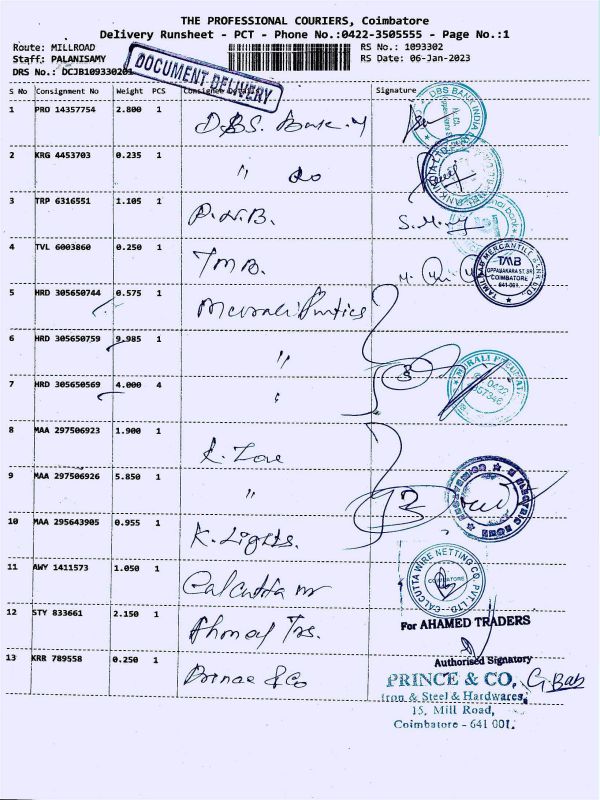 THE PROFESSIONAL COURIERS, Coimbatore
Delivery Runsheet - PCT - Phone No.:0422-3505555 - Page No.:1
Route: MILLROAD
RS No.: 1093302
Staff: PALANISAMY
RS Date: 06-Jan-2023
DRS No.: DCJB109330201
DOCUMENT DELIVERY
S No Consignment No Weight PCS Consignee Details Signature
1 PRO 14357754 2.800 1 D.B.S. Bank
DBS BANK INDIA
2 KRG 4453703 0.235 1 " Do
3 TRP 6316551 1.105 1 P.N.B.
4 TVL 6003860 0.250 1 TMB.
TAMILNAD MERCANTILE BANK LTD.
TMB
OPPANAKARA ST. BR.
COIMBATORE
641 001
5 HRD 305650744 0.575 1
6 HRD 305650759 9.985 1 "
7 HRD 305650569 4.000 4 "
3
0422
8 MAA 297506923 1.900 1
9 MAA 297506926 5.850 1 "
2
10 MAA 295643905 0.955 1 K. Lights.
11 AWY 1411573 1.050 1 Calcutta
CALCUTTA WIRE NETTING CO. PVT. LTD.
COIMBATORE
12 STY 833661 2.150 1
For AHAMED TRADERS
Authorised Signatory
13 KRR 789558 0.250 1 Prince & Co
PRINCE & CO,
Iron & Steel & Hardwares,
15, Mill Road,
Coimbatore - 641 001.
G. Bab